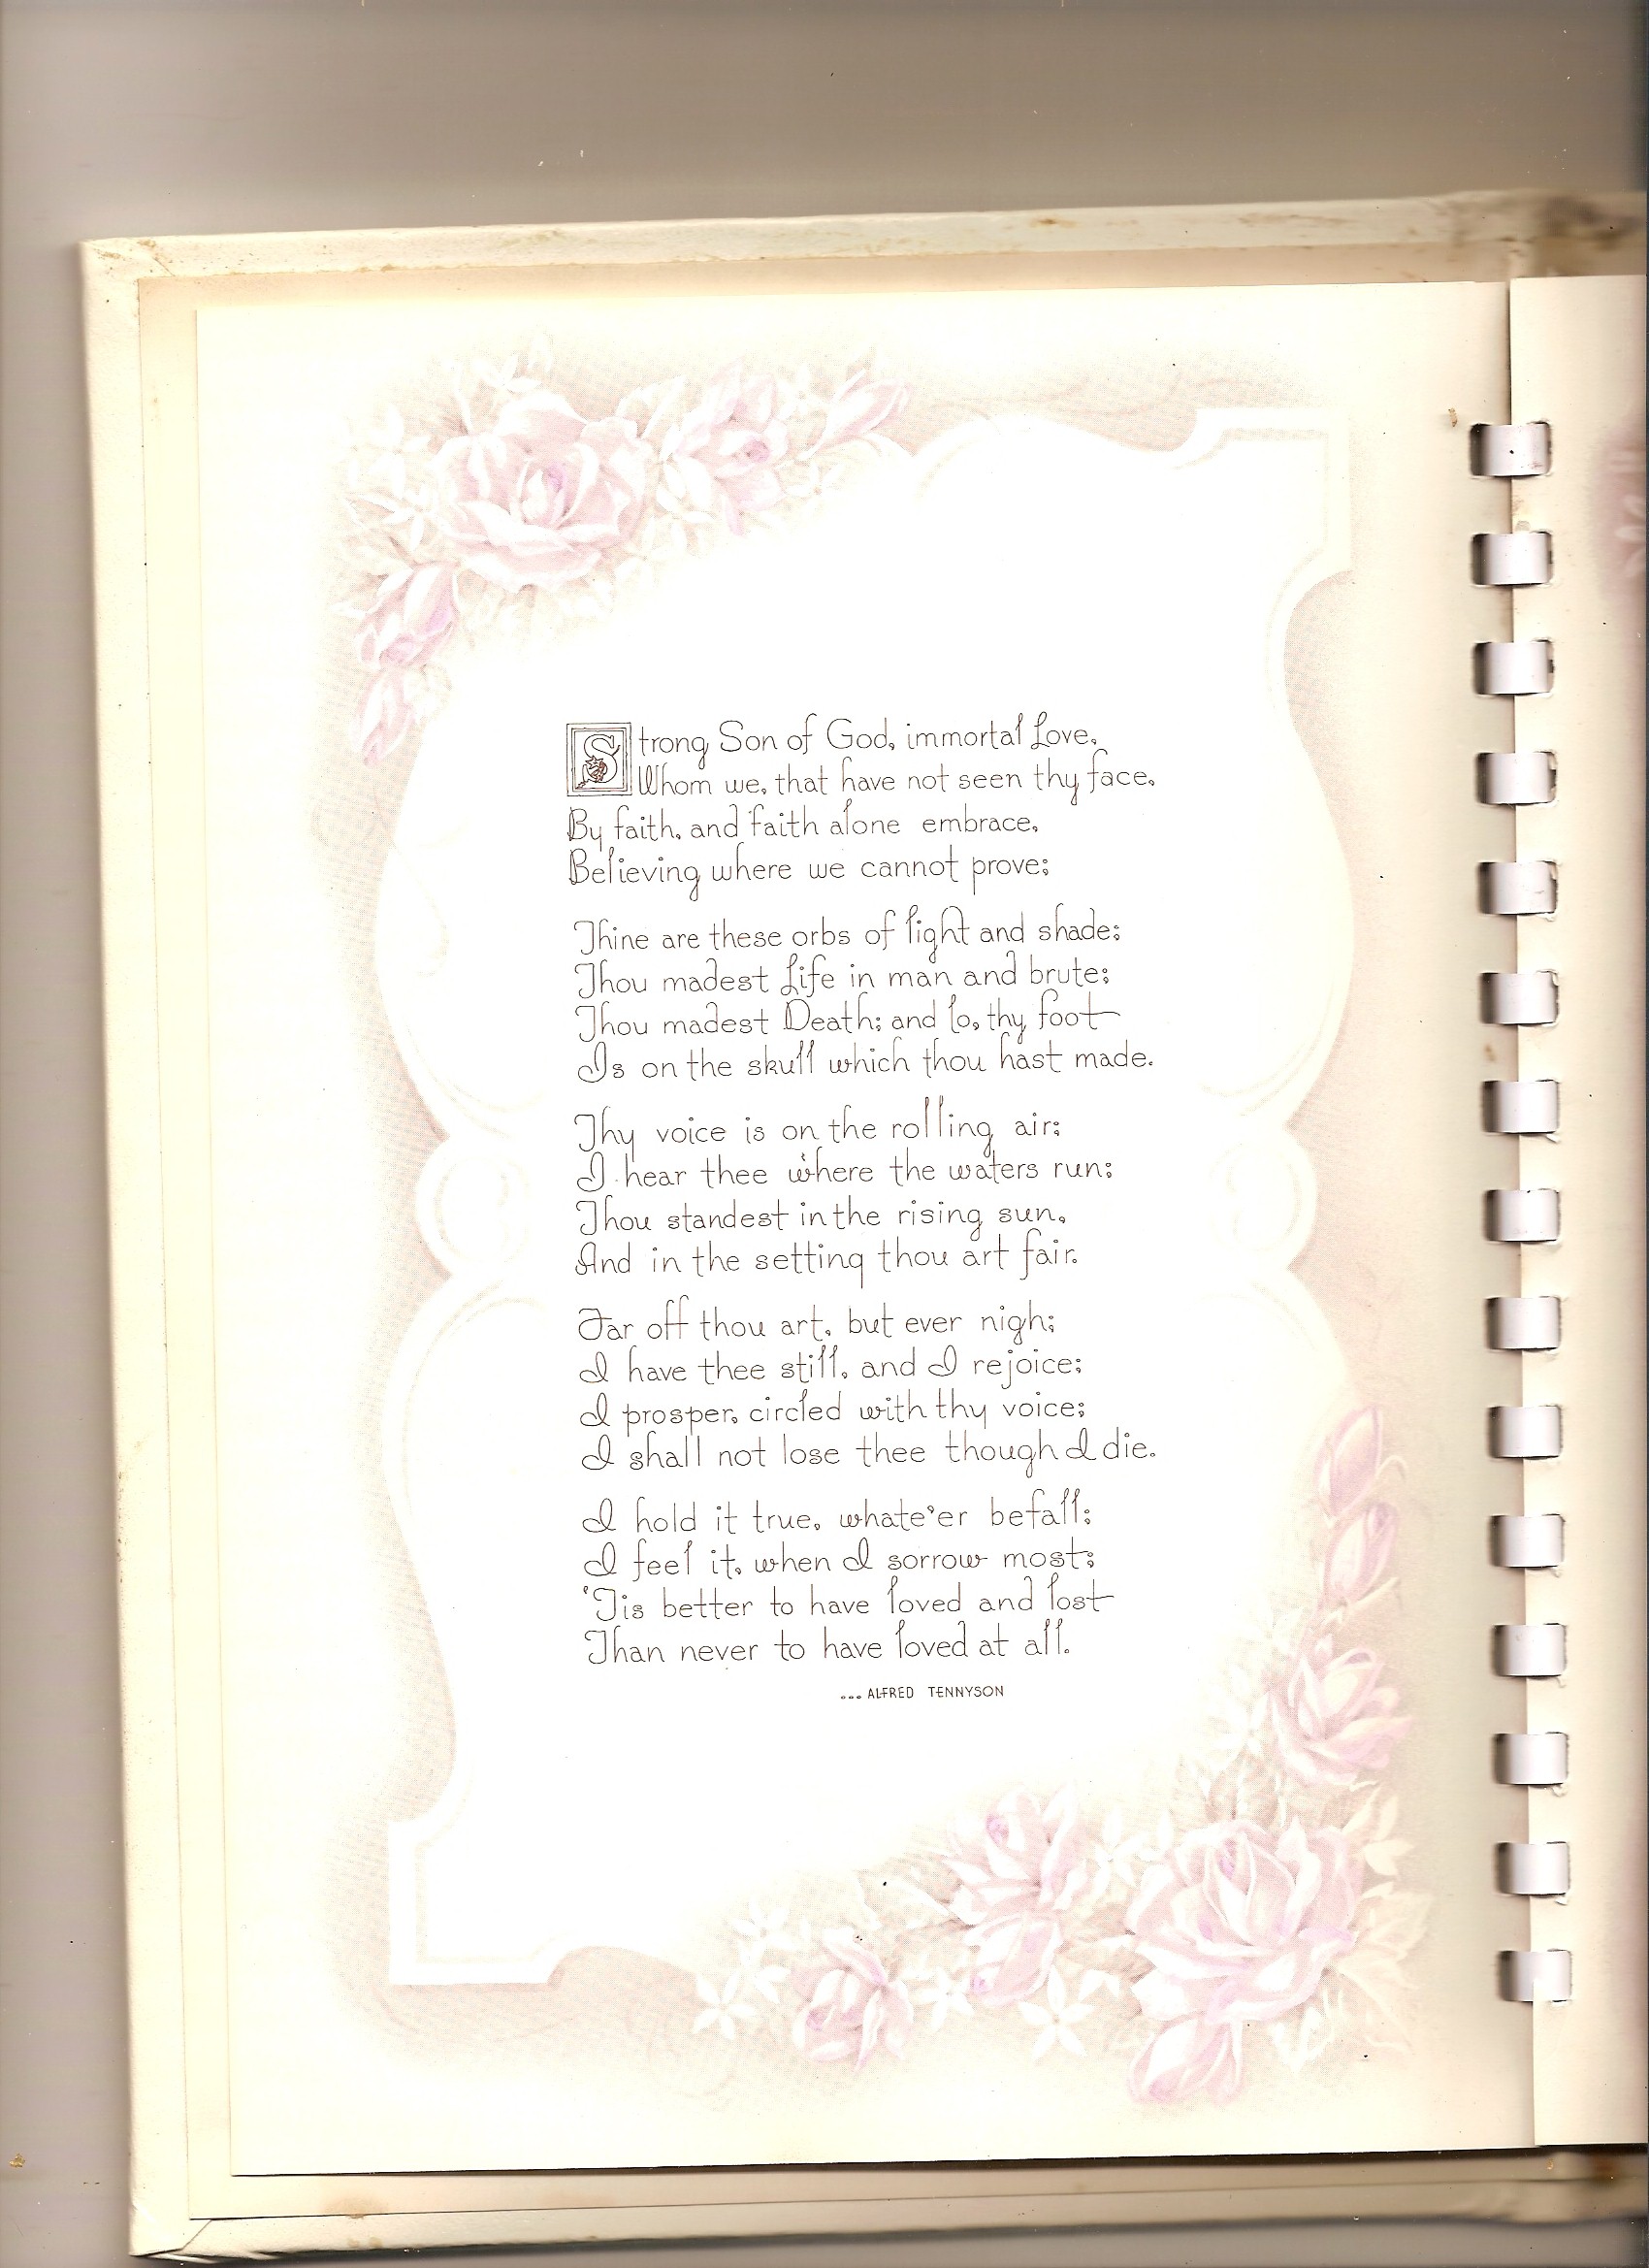 Strong Son of God, immortal Love,
Whom we, that have not seen thy face,
By faith, and faith alone embrace,
Believing where we cannot prove;
Thine are these orbs of light and shade;
Thou madest Life in man and brute;
Thou madest Death; and lo, thy foot
Is on the skull which thou hast made.
Thy voice is on the rolling air;
I hear thee where the waters run;
Thou standest in the rising sun,
And in the setting thou art fair.
Far off thou art, but ever nigh;
I have thee still, and I rejoice;
I prosper, circled with thy voice;
I shall not lose thee though I die.
I hold it true, whate'er befall;
I feel it, when I sorrow most;
'Tis better to have loved and lost
Than never to have loved at all.
...ALFRED TENNYSON